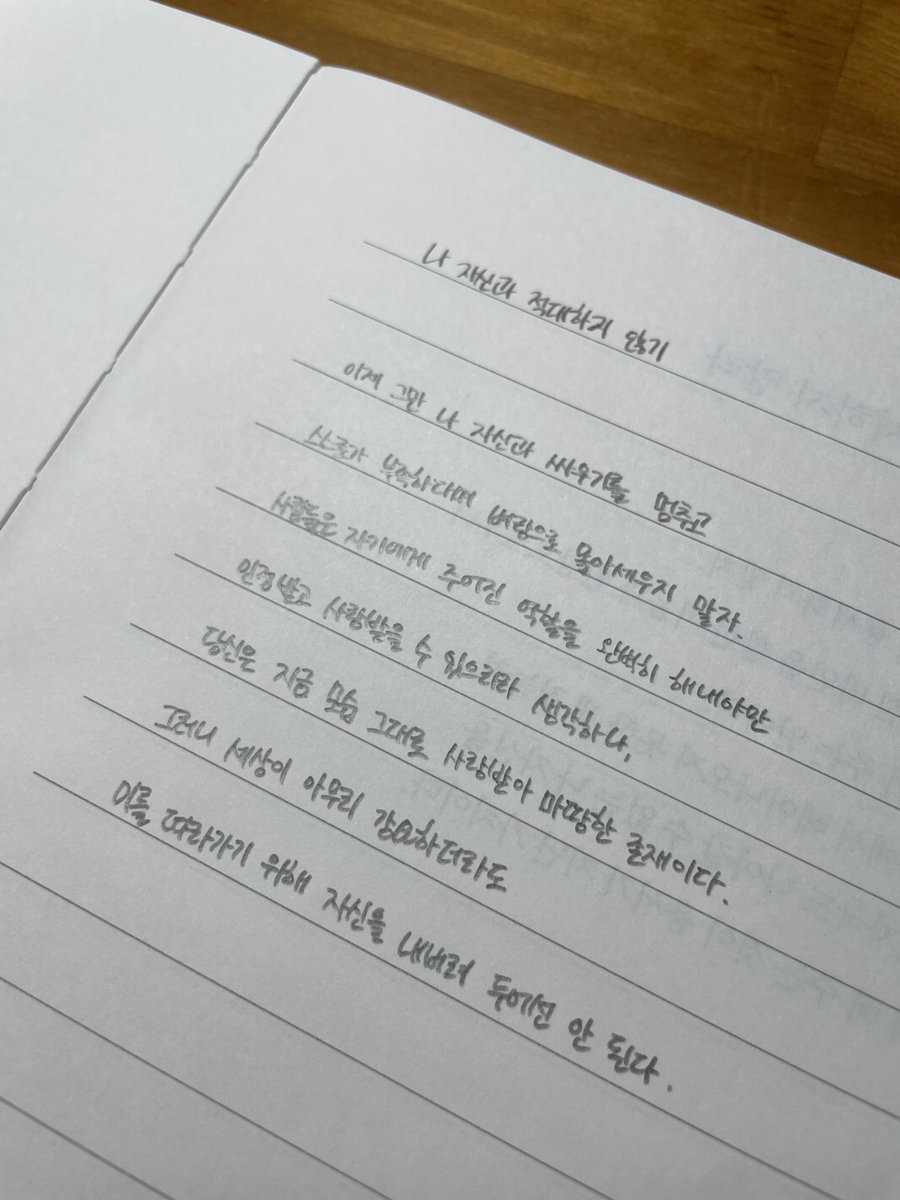 나 자신과 적대하지 않기
이제 그만 나 자신과 싸우기를 멈추고
스스로가 부족하다며 벼랑으로 몰아세우지 말자.
사람들은 자기에게 주어진 역할을 완벽히 해내야만
인정받고 사랑받을 수 있으리라 생각하나,
당신은 지금 모습 그대로 사랑받아 마땅한 존재이다.
그러니 세상이 아무리 강요하더라도
이를 따라가기 위해 자신을 내버려 두어선 안 된다.